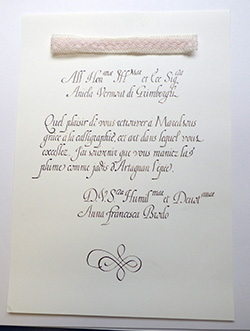 All Hon.ma Ill.ma et Ecc Sig.ra
Aniela Vermout di Grimbergli
Quel plaisir de vous retrouver à Maredsous
grâce à la calligraphie, cet art dans lequel vous
excellez. J'ai souvenir que vous maniez la
plume comme jadis d'Artagnan l'épée.
D.V.S. Humil.ma et Devot.
Anna francesca Brodo